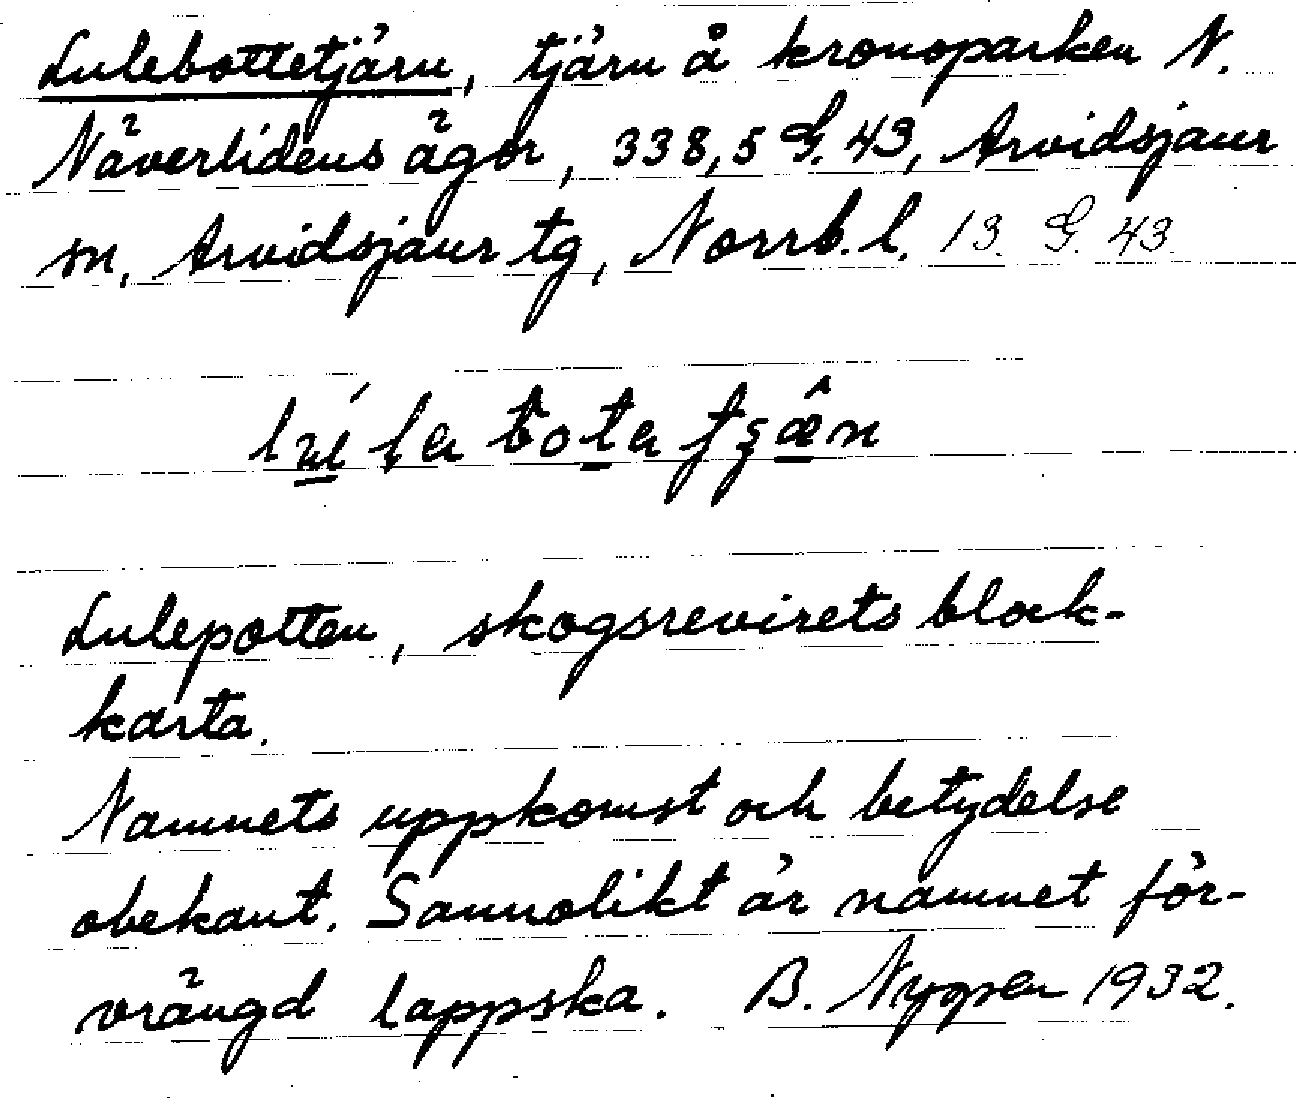 Lulebottetjärn, tjärn å kronoparken N.
Näverlidens ägor, 338,5 G. 43, Arvidsjaur
sn, Arvidsjaur tg, Norrb. l. 13. G. 43.
Lulepotten, skogsrevirets block-
karta.
Namnets uppkomst och betydelse
obekant. Sannolikt är namnet för-
vrängd lappska. B. 1932.